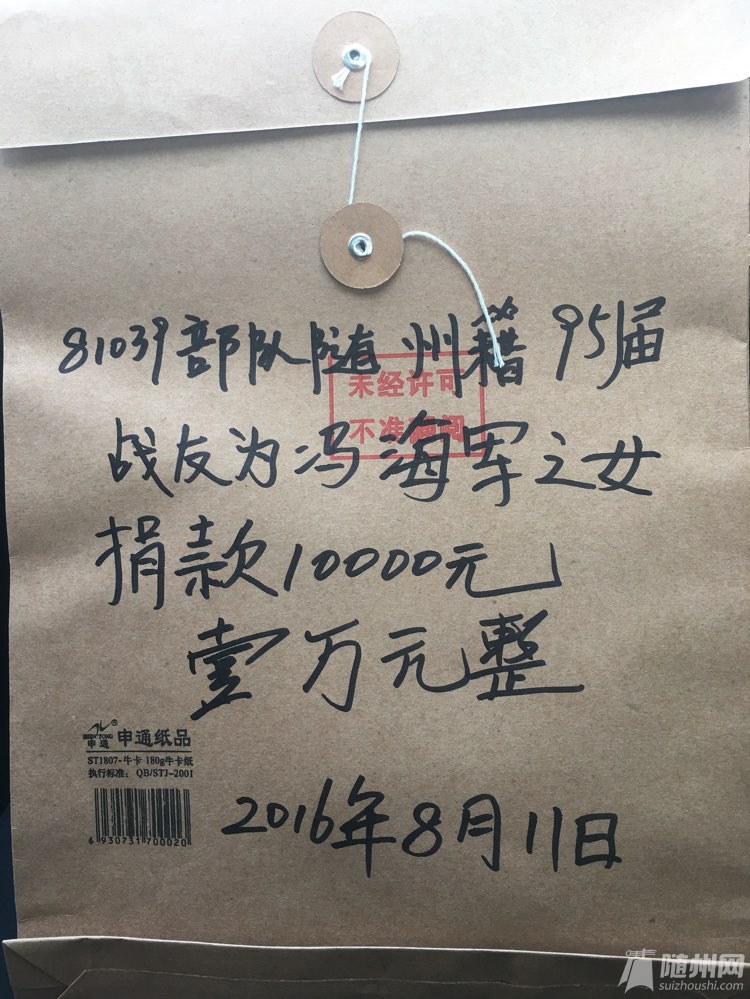 81039部队随州籍95届
未经许可
不准翻阅
战友为冯海军之女
捐款10000元
壹万元整
SHEN TONG
申通
®
申通纸品
ST1807-牛卡 180g牛卡纸
执行标准：QB/STJ-2001
6 930731 700020
2016年8月11日
随州网
suizhoushi.com